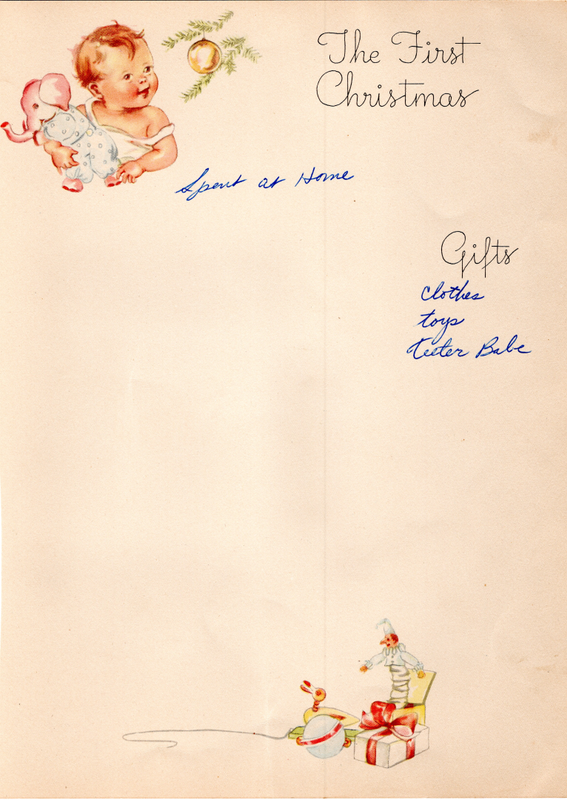 The First
Christmas
Spent at Home
Gifts
clothes
toys
Teeter Babe